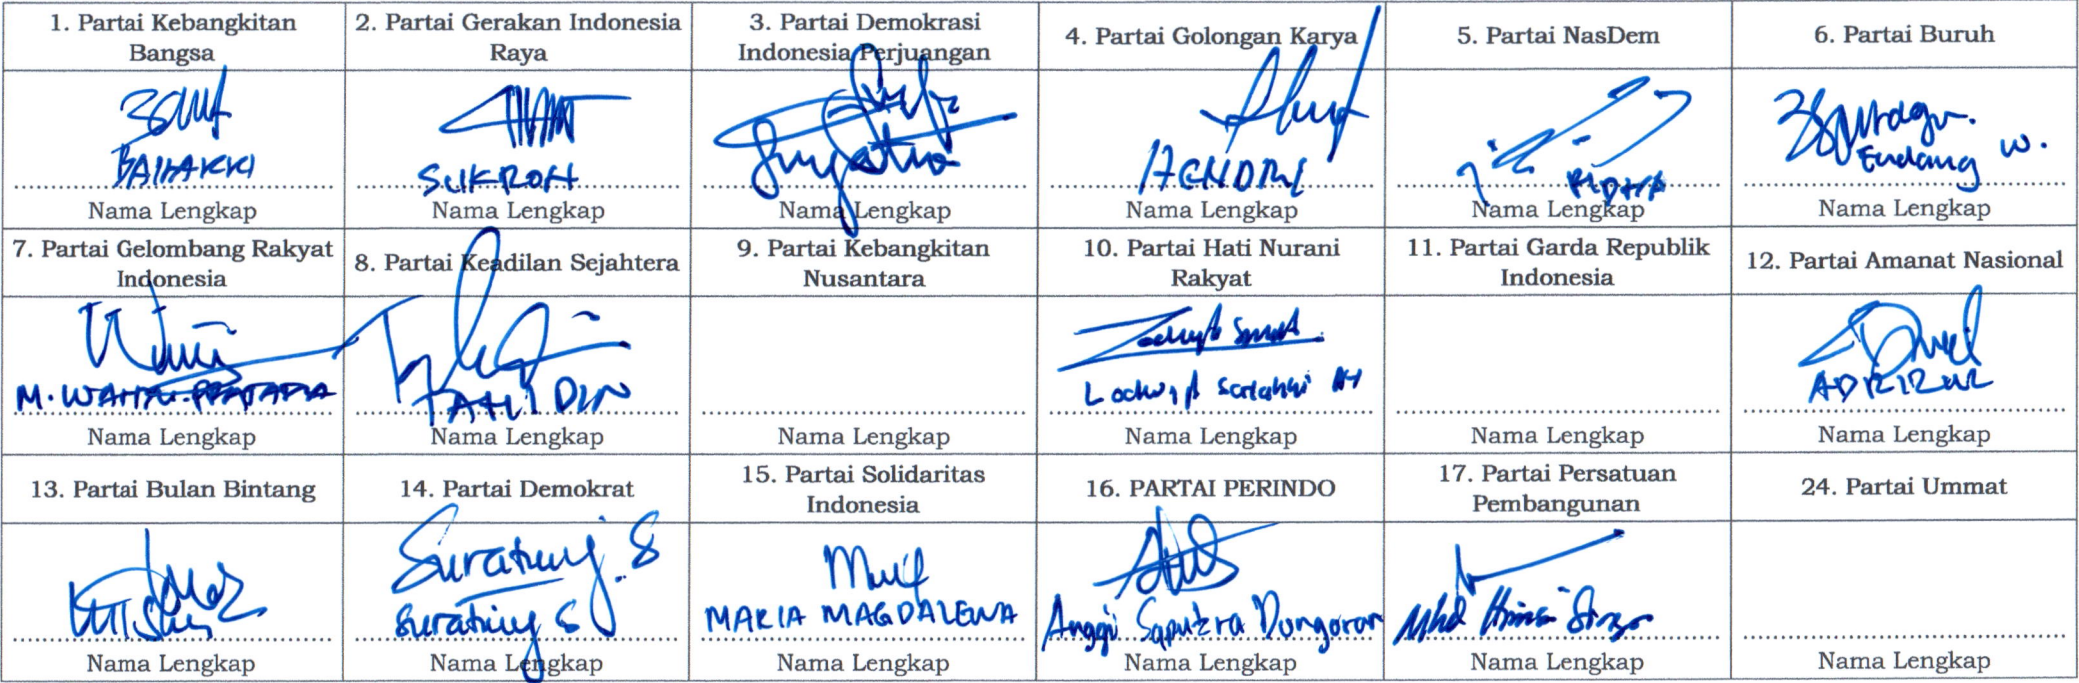 1. Partai Kebangkitan
Bangsa
2. Partai Gerakan Indonesia
Raya
3. Partai Demokrasi
Indonesia Perjuangan
4. Partai Golongan Karya
5. Partai NasDem
6. Partai Buruh
BAIHAKKI
SUKRON
Sugatno
HENDRI
RIDHA
Endang W.
Nama Lengkap
Nama Lengkap
Nama Lengkap
Nama Lengkap
Nama Lengkap
Nama Lengkap
7. Partai Gelombang Rakyat
Indonesia
8. Partai Keadilan Sejahtera
9. Partai Kebangkitan
Nusantara
10. Partai Hati Nurani
Rakyat
11. Partai Garda Republik
Indonesia
12. Partai Amanat Nasional
M.
Nama Lengkap
Nama Lengkap
Nama Lengkap
Nama Lengkap
Nama Lengkap
Nama Lengkap
13. Partai Bulan Bintang
14. Partai Demokrat
15. Partai Solidaritas
Indonesia
16. PARTAI PERINDO
17. Partai Persatuan
Pembangunan
24. Partai Ummat
MARIA MAGDALENA
Anggi Saputra Dongoran
Mhd
Nama Lengkap
Nama Lengkap
Nama Lengkap
Nama Lengkap
Nama Lengkap
Nama Lengkap